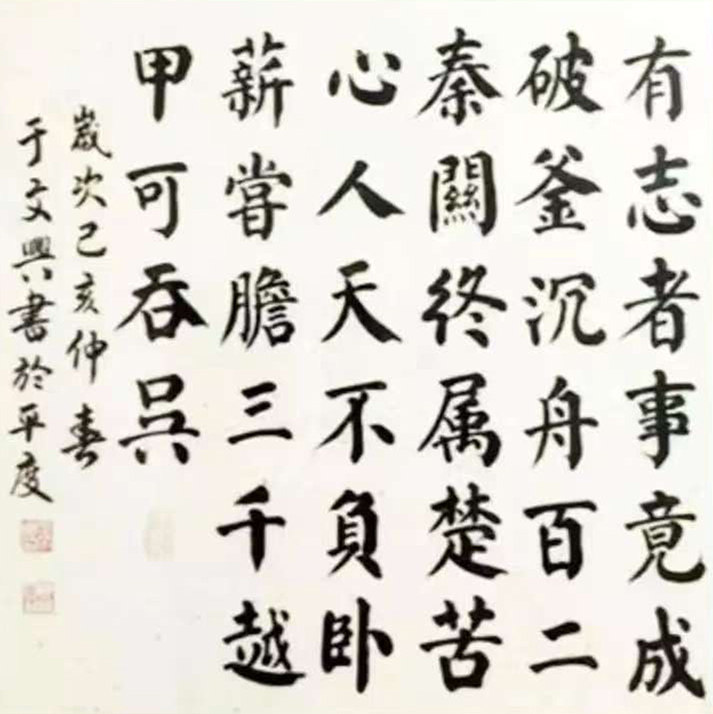 有志者事竟成
破釜沉舟百二
秦關终属楚苦
心人天不負卧
薪嘗膽三千越
甲可吞吴
嵗次己亥仲春
于文興書於平度